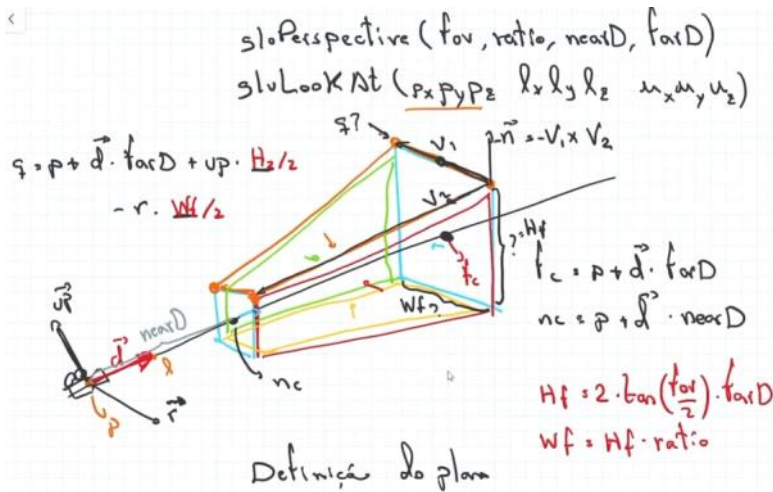 gluPerspective (fov, ratio, nearD, farD)
gluLookAt (px py pz lx ly lz ux uy uz)
q?
V1
-n⃗ = -V1 x V2
q = p + d⃗ . farD + up . Hf/2
- r . Wf/2
V2
? = Hf
fc
fc = p + d⃗ . farD
nc = p + d⃗ . nearD
Wf?
up
nearD
d⃗
l
nc
p
r⃗
Hf = 2 . tan(fov/2) . farD
Wf = Hf . ratio
Definição do plano